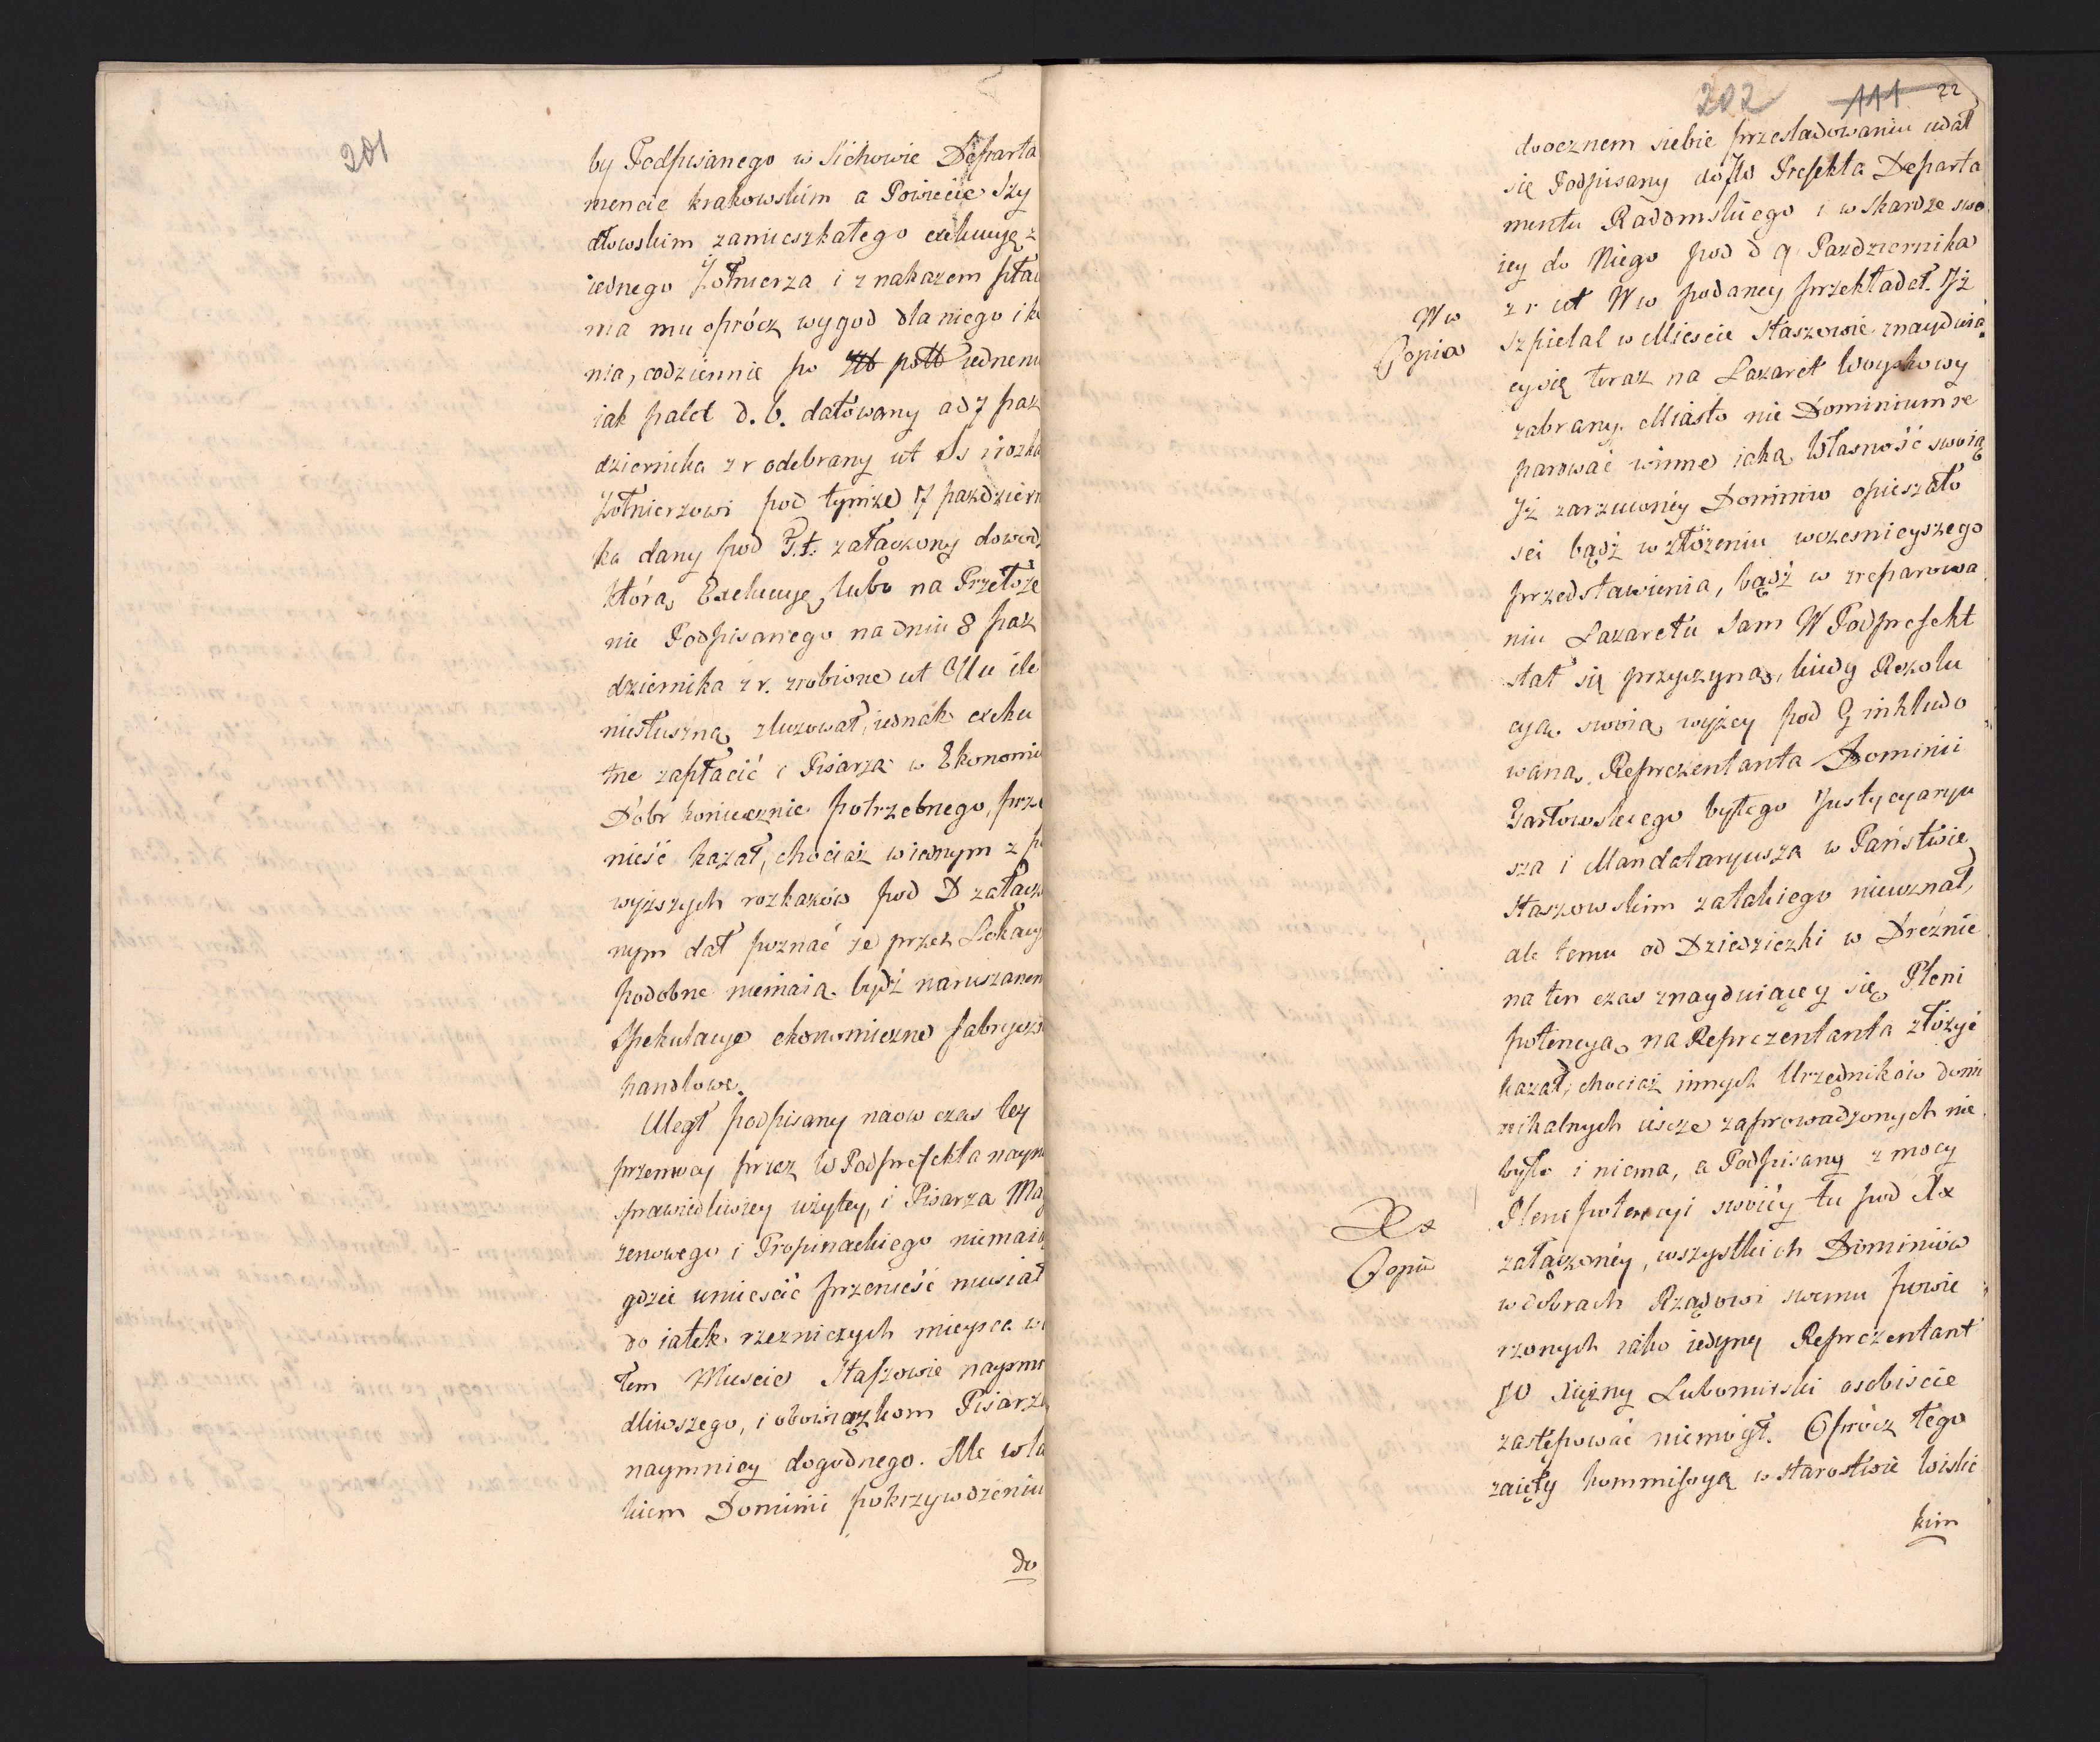 201
by Podpisanego w Sichowie Departa
mencie krakowskim a Powiecie Szy
dłowskim zamieszkałego exekucyę z
iednego Żołnierza i z nakazem płac
nia mu oprócz wygod dla niego i ko
nia, codziennie po iednemu
iak palet d. b. datowany ad 7 paz
dziernika z r odebrany ut Ss i rozka
Żołnierzowi pod tymże 17 pazdzierni
ka dany pod T.t. załączony dowod
którą Exekucyę, lubo na Przełoże
nie Podpisanego na dniu 8 paz
dziernika z r. zrobione ut Uu ile
niesłuszną zluzował, iednak exeku
tne zapłacić i Pisarza w Ekonomie
Dobr koniecznie potrzebnego, prze
nieść kazał, chociaż w iednym z po
wyższych rozkazów pod D załącz
nym dał poznać że przez Lokacye
podobne niemaią bydź naruszanem
Spekulacye ekonomiczne fabryczn
handlowe.
Uległ podpisany naow czas tey
przemocy przez W Podprefekta nayn
sprawiedliwiey użytey, i Pisarza Mag
zenowego i Propinackiego niemaią
gdzie umieścić przenieść musiał
do iatek rzezniczych mieysca w
tem Mieście Staszowie nayom
dliwszego, i obowiązkom Pisarza
naymniey dogodnego. Ale w ta
kiem Dominii pokrzywdzeniu
do
202 111 22
doocznem siebie prześladowaniu udał
się Podpisany do JW Prefekta Departa
mentu Radomskiego i w Skardze swo
iey do Niego pod d 9 Pazdziernika
Ww
z r ut Ww podaney przekładał. Iż
Copia
Szpital w Mieście Staszowie znayduią
cy się teraz na Lazaret Woyskowy
zabrany. Miasto nie Dominium re
parować winne iaką Własność swoią
Iż zarzuconéy Dominio opieszało
sci bądź w złożeniu wczesnieyszego
przedstawienia, bądź w zreparowa
niu Lazaretu Sam W Podprefekt
stał się przyczyną, kiedy Rezolu
cyą swoią wyżey pod G inkludo
waną Reprezentanta Dominii
Garłowskiego byłego Justycyaryu
sza i Mandataryusza w Państwie
Staszowskim zatakiego nieuznał,
ale temu od Dziedziczki w Dreźnie
na ten czas znayduiącey się Pleni
potencyą na Reprezentanta złożyć
kazał, chociaż innych Urzędnikow domi
nikalnych ieszcze zaprowadzonych nie
było i niema, a Podpisany z mocy
Xx
Plenipotencyi swoiéy tu pod Xx
załączonéy, wszystkich Dominiów
Copia
w dobrach Rządowi swemu powie
rzonych iako iedyny Reprezentant
JO Xiężny Lubomirski osobiscie
zastępować niemógł. Oprócz tego
zaięty kommissyą w starostwie Wislic
kim